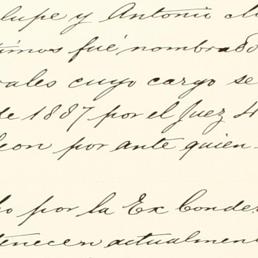 lupe y Antonio
timos fué nombrado
rales cuyo cargo se
de 1887 por el Juez 4
León por ante quien
do por la Ex Conde
tenecen actualmen